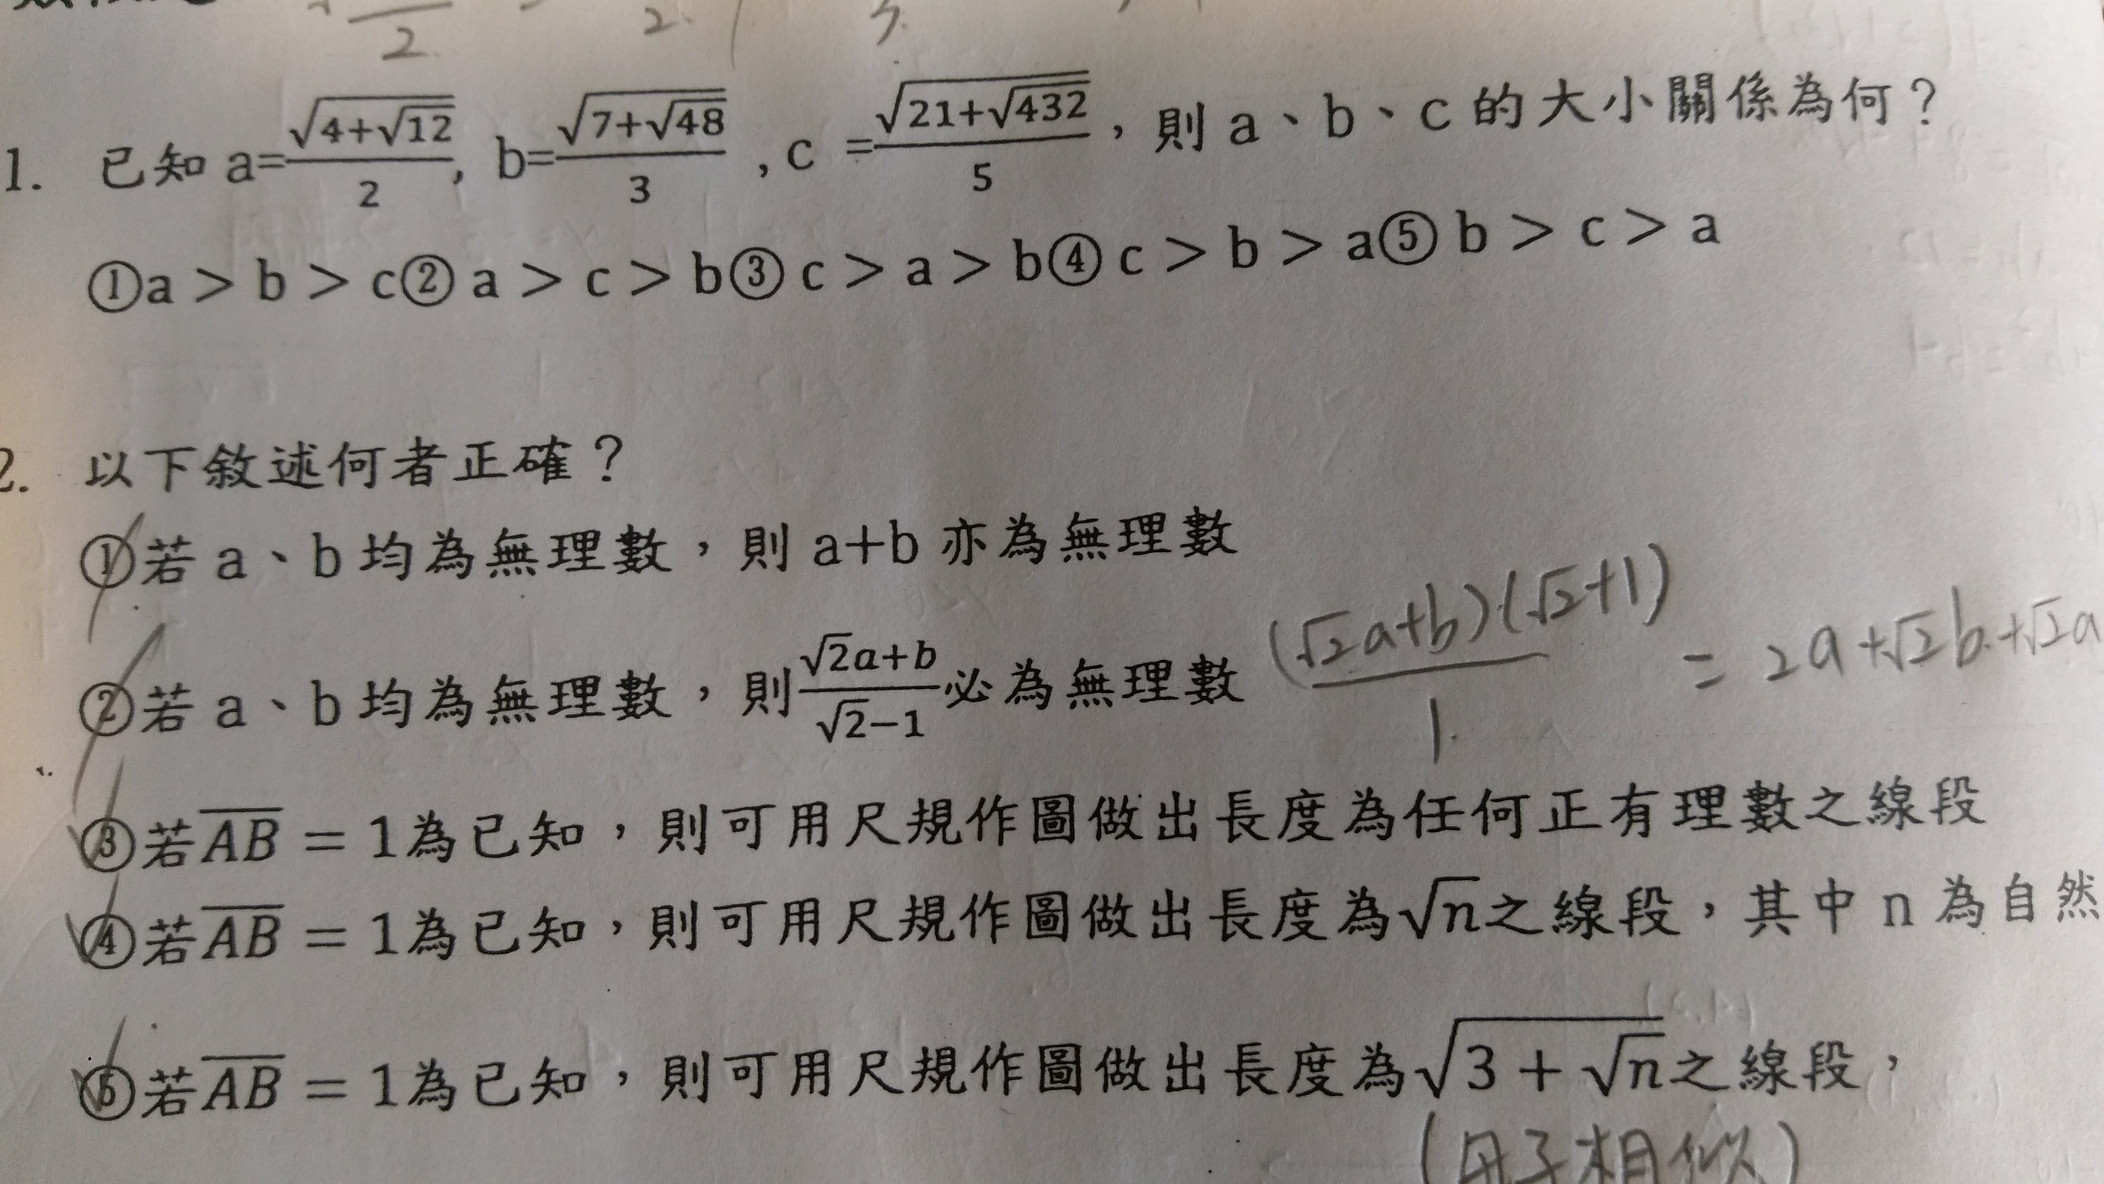 2 2. 3.
1. 已知 a=√(4+√12)/2, b=√(7+√48)/3 , c =√(21+√432)/5，則 a、b、c 的大小關係為何？
①a > b > c② a > c > b③ c > a > b④ c > b > a⑤ b > c > a
2. 以下敘述何者正確？
①若 a、b 均為無理數，則 a+b 亦為無理數
②若 a、b 均為無理數，則(√2a+b)/(√2−1)必為無理數 (√2a+b)(√2+1)/1. = 2a+√2b+√2a
③若AB = 1為已知，則可用尺規作圖做出長度為任何正有理數之線段
④若AB = 1為已知，則可用尺規作圖做出長度為√n之線段，其中 n 為自然
⑤若AB = 1為已知，則可用尺規作圖做出長度為√(3 + √n)之線段，
(母子相似)